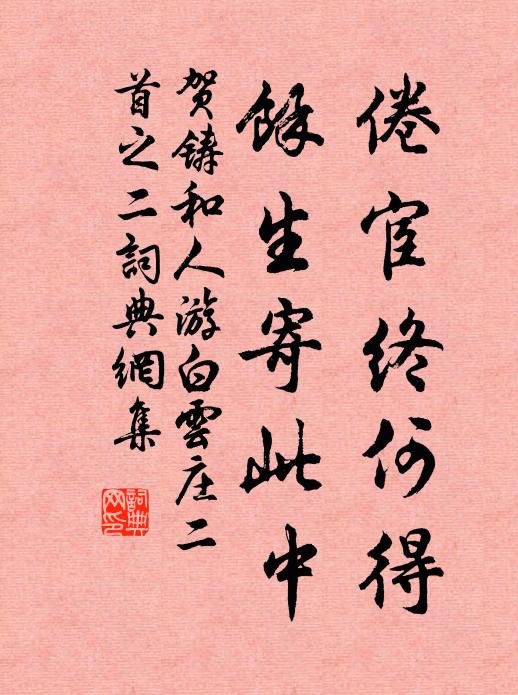 倦宦终何得
馀生寄此中
贺铸和人游白雲庄二
首之二詞典網集
詞典
网印